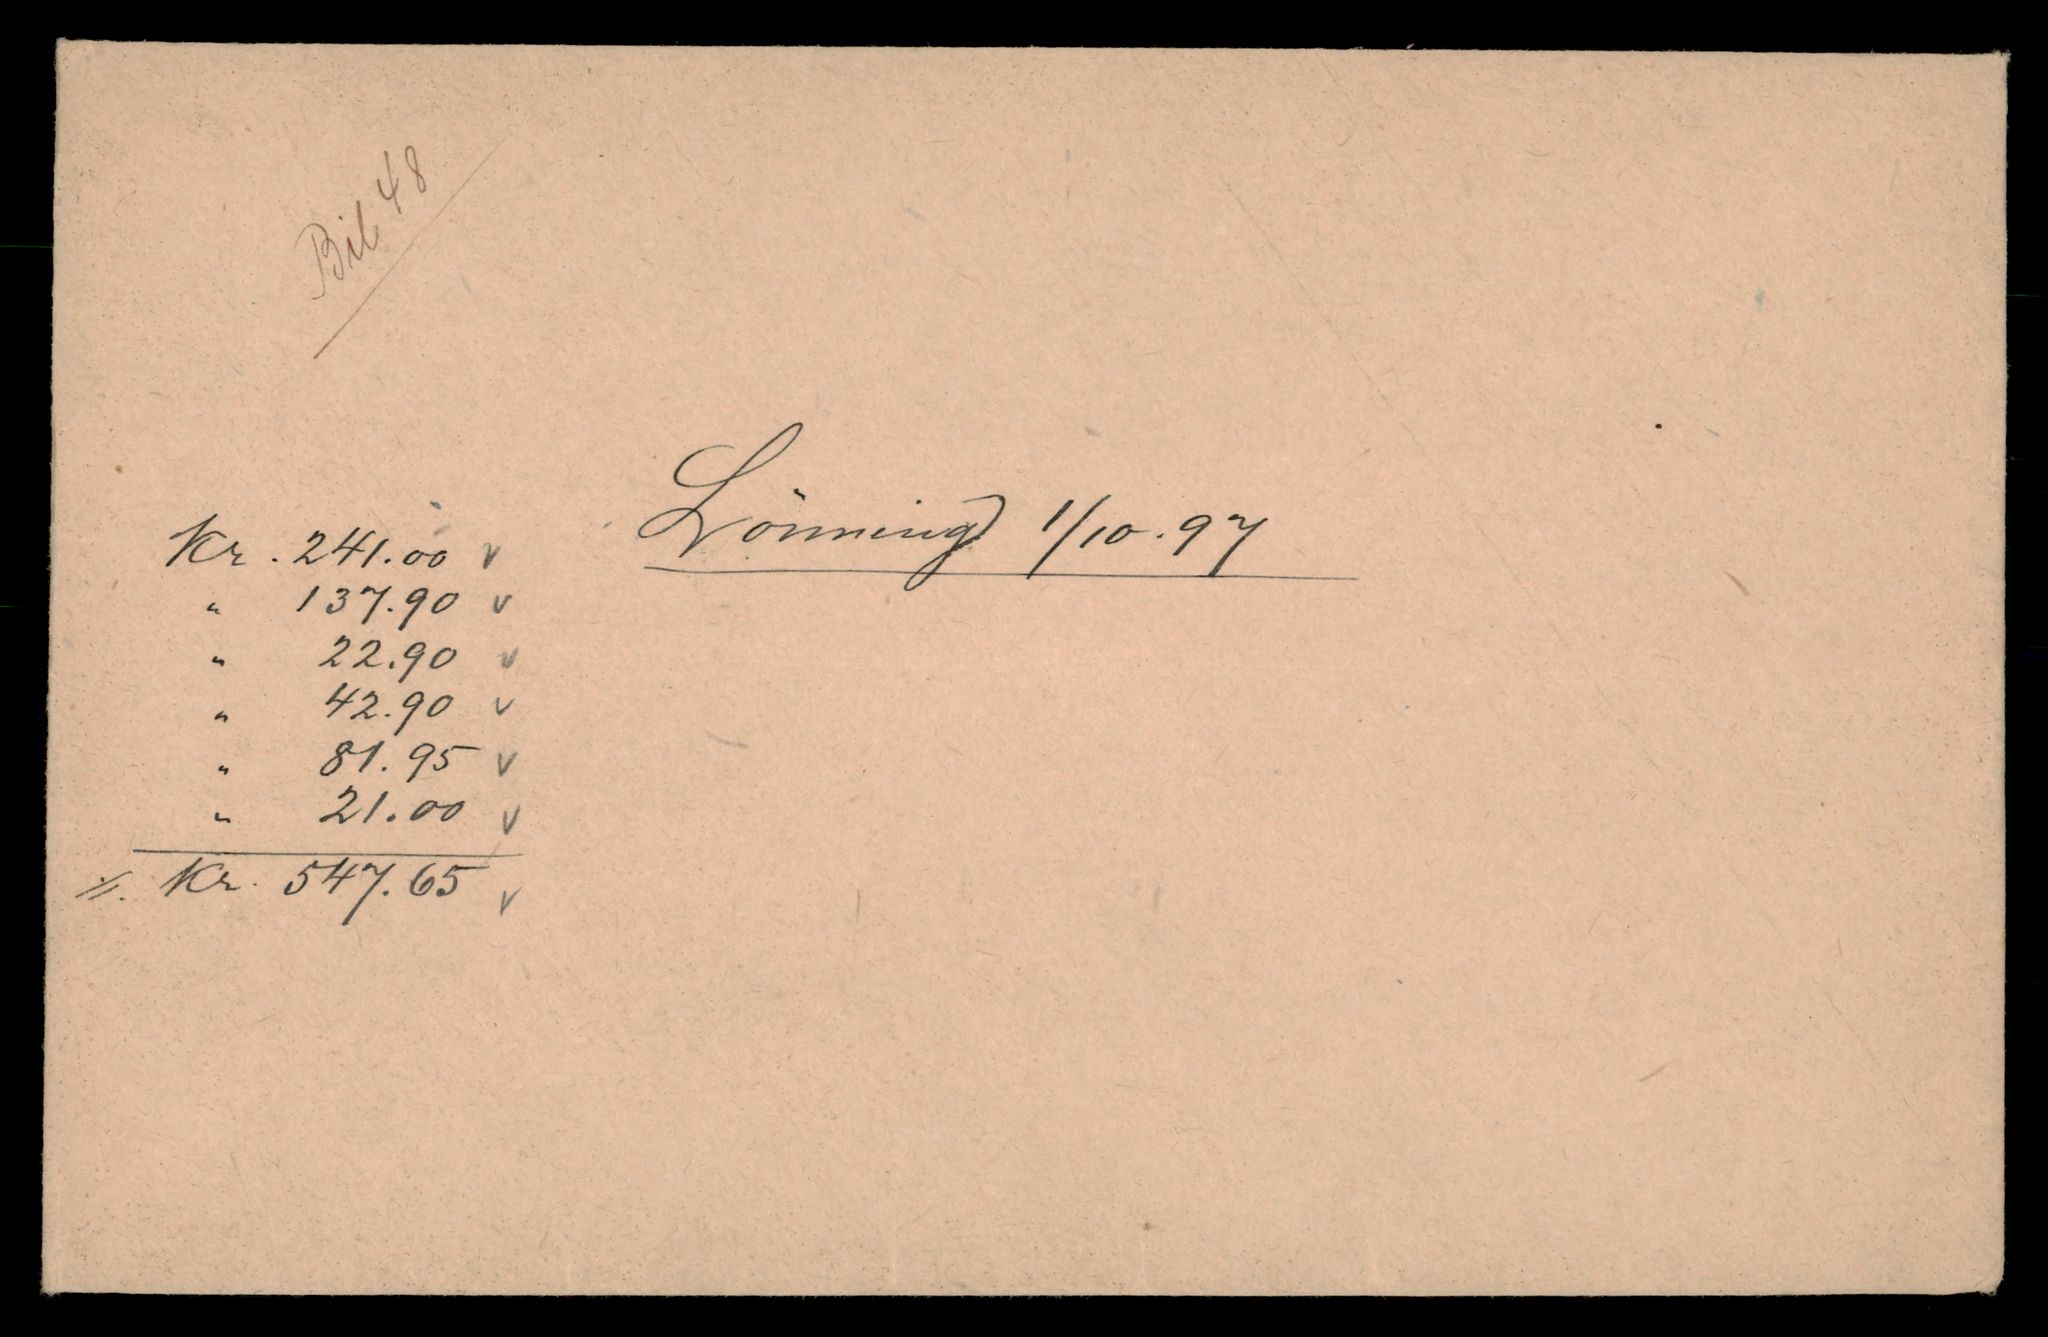 Bil 48
Lönning 1/10.97
Kr. 241.00 v
" 137.90 v
" 22.90 v
" 42.90 v
" 81.95 v
" 21.00 v
Kr. 547.65 v